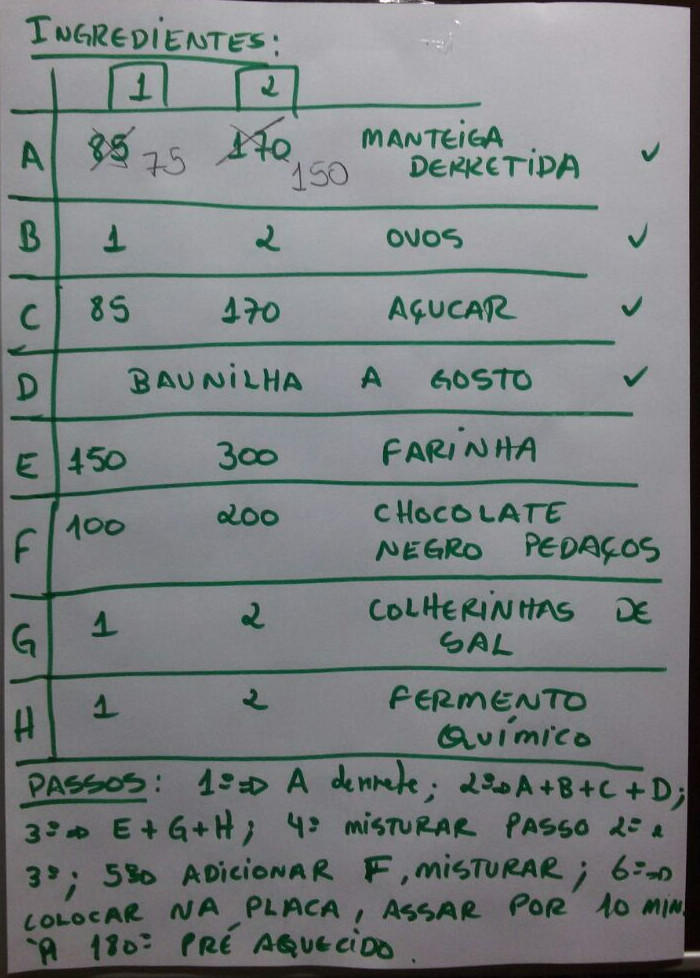 INGREDIENTES:
1 2
A 85 75 170 150 MANTEIGA
DERRETIDA ✓
B 1 2 OVOS ✓
C 85 170 AÇUCAR ✓
D BAUNILHA A GOSTO ✓
E 150 300 FARINHA
F 100 200 CHOCOLATE
NEGRO PEDAÇOS
G 1 2 COLHERINHAS DE
SAL
H 1 2 FERMENTO
QUÍMICO
PASSOS: 1º => A derrete; 2º => A+B+C+D;
3º => E+G+H; 4º MISTURAR PASSO 2º e
3º; 5º => ADICIONAR F, MISTURAR; 6º =>
COLOCAR NA PLACA, ASSAR POR 10 MIN.
À 180º PRÉ AQUECIDO.